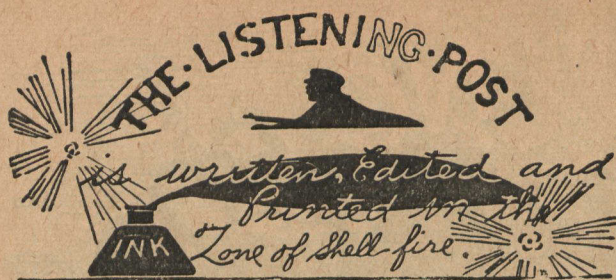 THE·LISTENING·POST
is written, Edited and
Printed in the
INK
Zone of Shell fire.